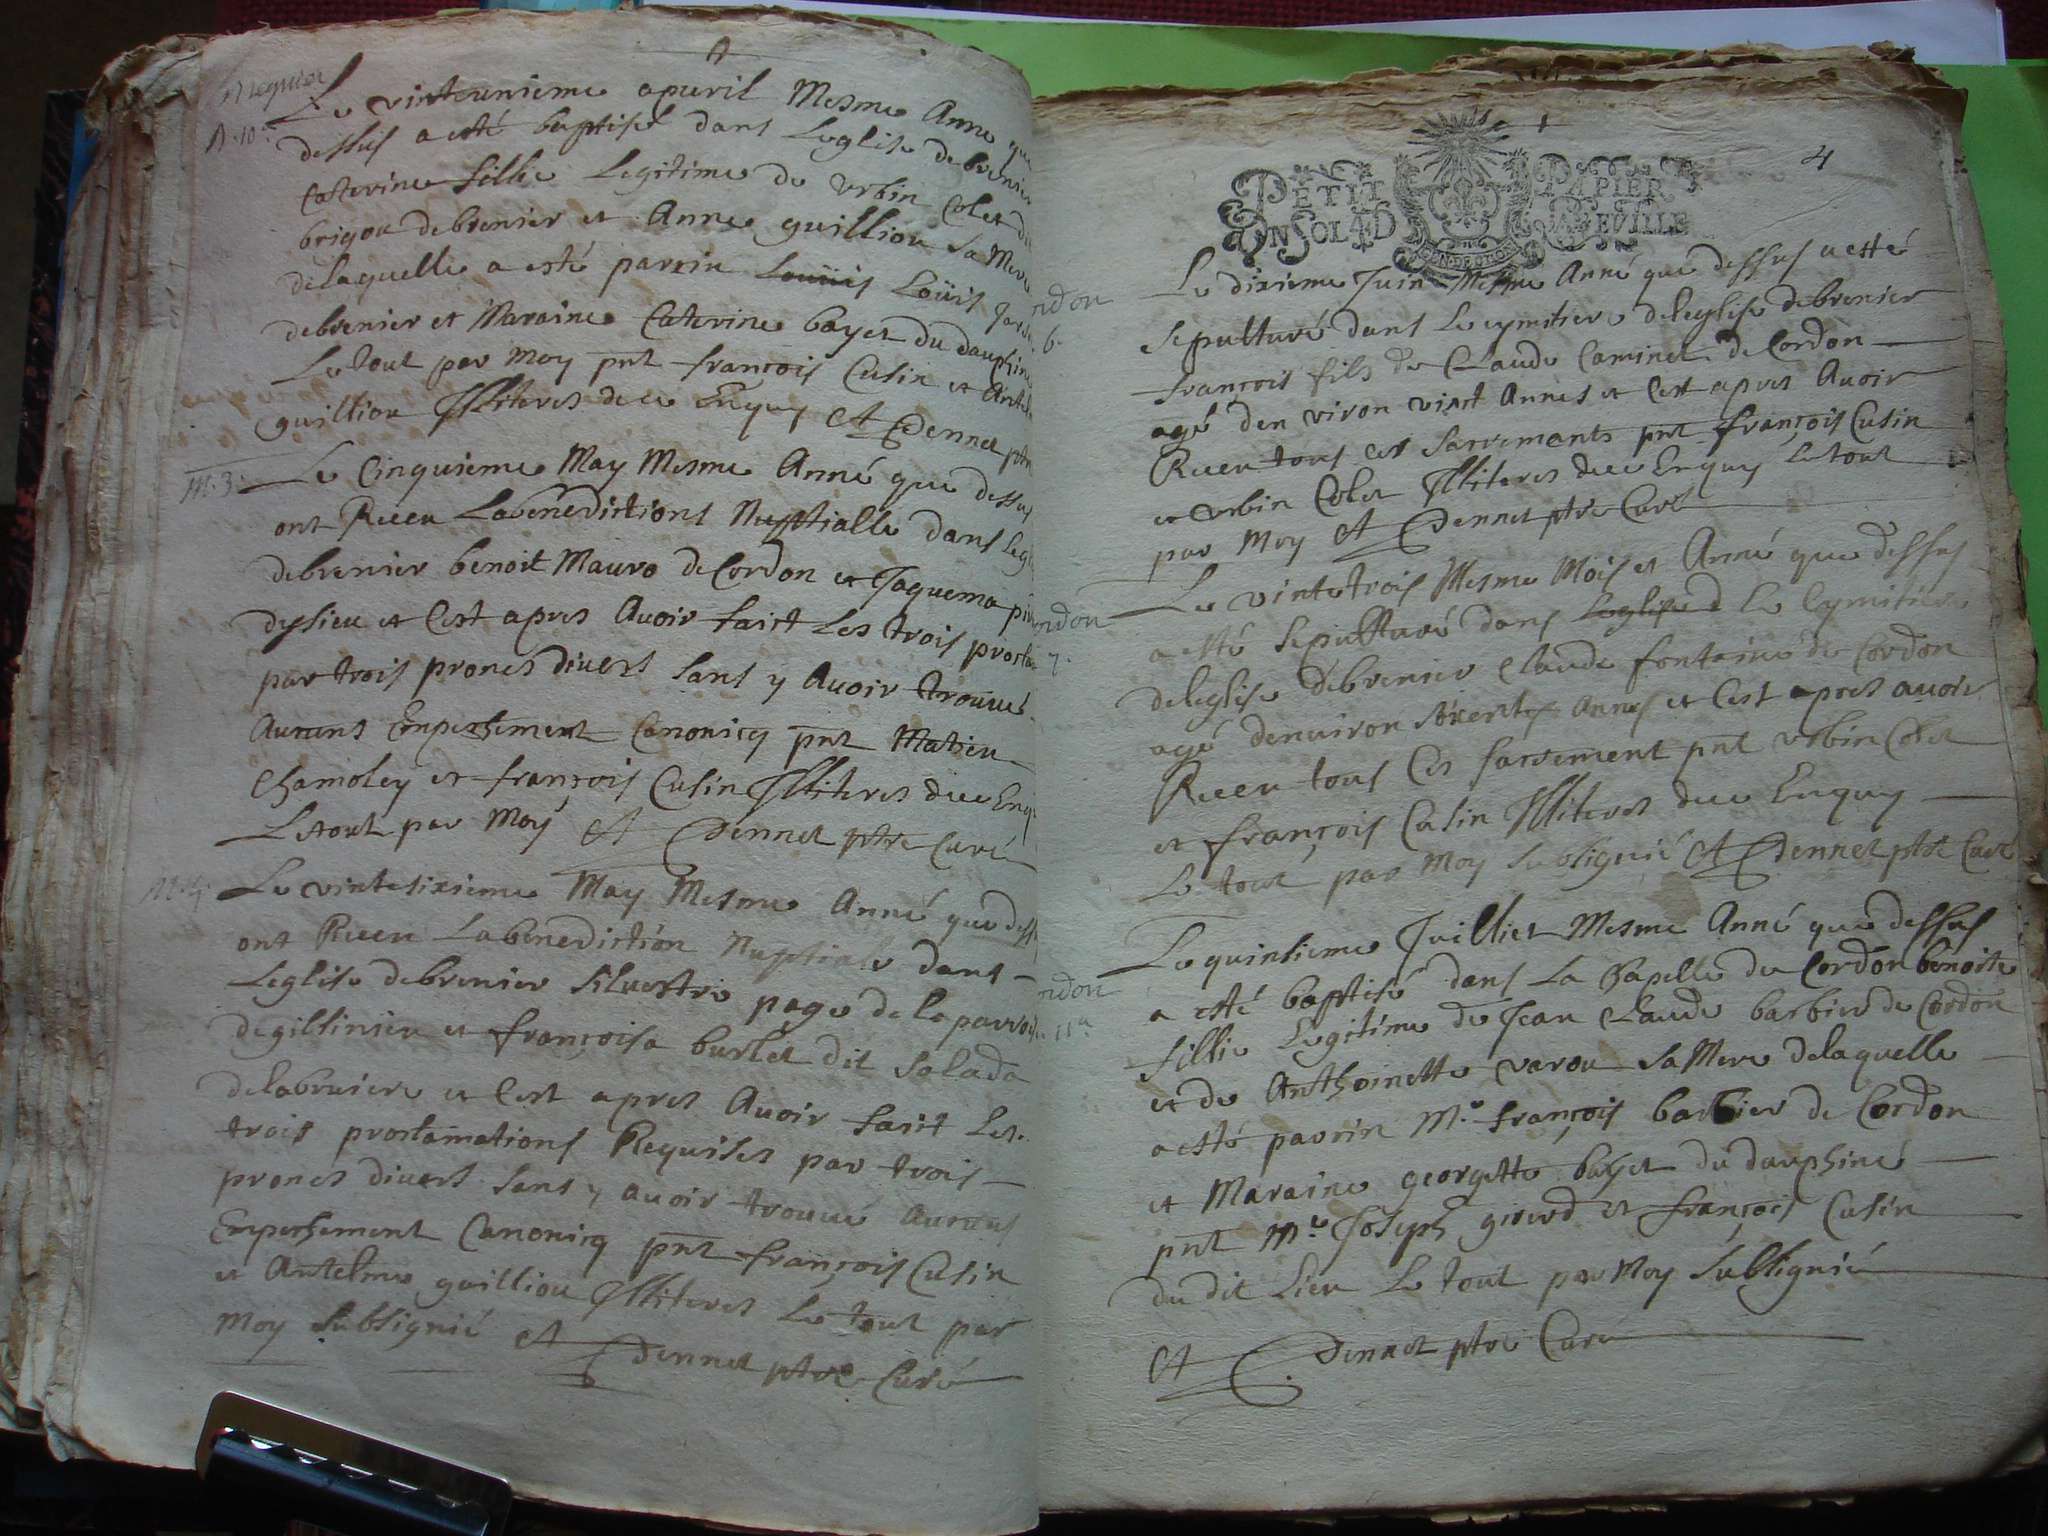 N. 10.
Le vinteunieme apuril Mesme Anné que
dessus a esté baptisé dans Leglise de brenier
Caterine fillie Legitime de urbin Colet du
brigou de brenier et Anne guilliou Sa Mere
de laquelle a esté parrin Louuis Loüis
de brenier et Maraine Caterine bayet du dauphiné
Le tout par Moy pnt françois Cusin et Antel
guilliou Illiteres de ce Enquis A Dennet ptre
M. 3.
Le Cinquieme May Mesme Anné que dessus
ont Receu La benedictions Nuptialle dans Legl
de brenier benoit Mauro de Cordon et Jaquema
dysieu et C'est apres Auoir faict Les trois procla
par trois prones diuers sans y Auoir trouué
Aucuns Empechement Canonicq pnt Matieu
Chamoley et françois Cusin Illiteres de ce Enq
Le tout par Moy A Dennet ptre Curé
M. 4.
Le vintesixieme May Mesme Anné que dess
ont Receu La benediction Nuptiale dans
Leglise de brenier siluestre page de la parroi
de gillinieu et françoisa burlet dit Salada
de labruiere et C'est apres Auoir faict Les
trois proclamations Requises par trois
prones diuers sans y auoir trouué Aucuns
Empechement Canonicq pnt françois Cusin
et Antelme guilliou Illiteres Le tout par
Moy Subsignié A Dennet ptre Curé
4
PETIT PAPIER
UN SOL 4D LA FEUILLE
GEN. DE DIJON
ndon
6.
Le dixieme Juin Mesme Anné que dessus a esté
sepulturé dans Le cymitiere de leglise de brenier
françois fils de Claude Caminet de Cordon
agé den viron vint Annes et C'est apres Auoir
Receu tous ces sacremants pnt françois Cusin
et urbin Colet Illiteres de ce Enquis Le tout
par Moy A Dennet ptre Curé
ndon
7.
Le vintetrois Mesme Mois et Anné que dessus
a esté sepulturé dans Leglise d Le Cymitiere
de leglise de brenier Claude fontaine de Cordon
agé denuiron Annes et C'est apres auoir
Receu tous Ces sacrement pnt urbin Colet
et françois Cusin Illiteres de ce Enquis
Le tout par Moy Subsignié A Dennet ptre Curé
ndon
11.
Le quinsieme Juilliet Mesme Anné que dessus
a esté baptisé dans La Chapelle de Cordon benoite
fillie Legitime de Jean Claude barbier de Cordon
et de Anthoinette varou Sa Mere de laquelle
a esté parrin Mr. françois barbier de Cordon
et Maraine georgette bayet du dauphiné
pnt Mr. Joseph girerd et françois Cusin
du dit Lieu Le tout par Moy Subsignié
A Dennet ptre Curé